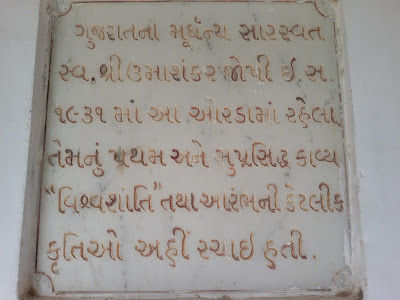 ગુજરાતનાં મૂર્ધન્ય સારસ્વત
સ્વ. શ્રી ઉમાશંકર જોષી ઈ.સ.
૧૯૩૧ માં આ ઓરડામાં રહેલા.
તેમનું પ્રથમ અને સુપ્રસિદ્ધ કાવ્ય
“વિશ્વશાંતિ” તથા આરંભની કેટલીક
કૃતિઓ અહીં રચાઇ હતી.